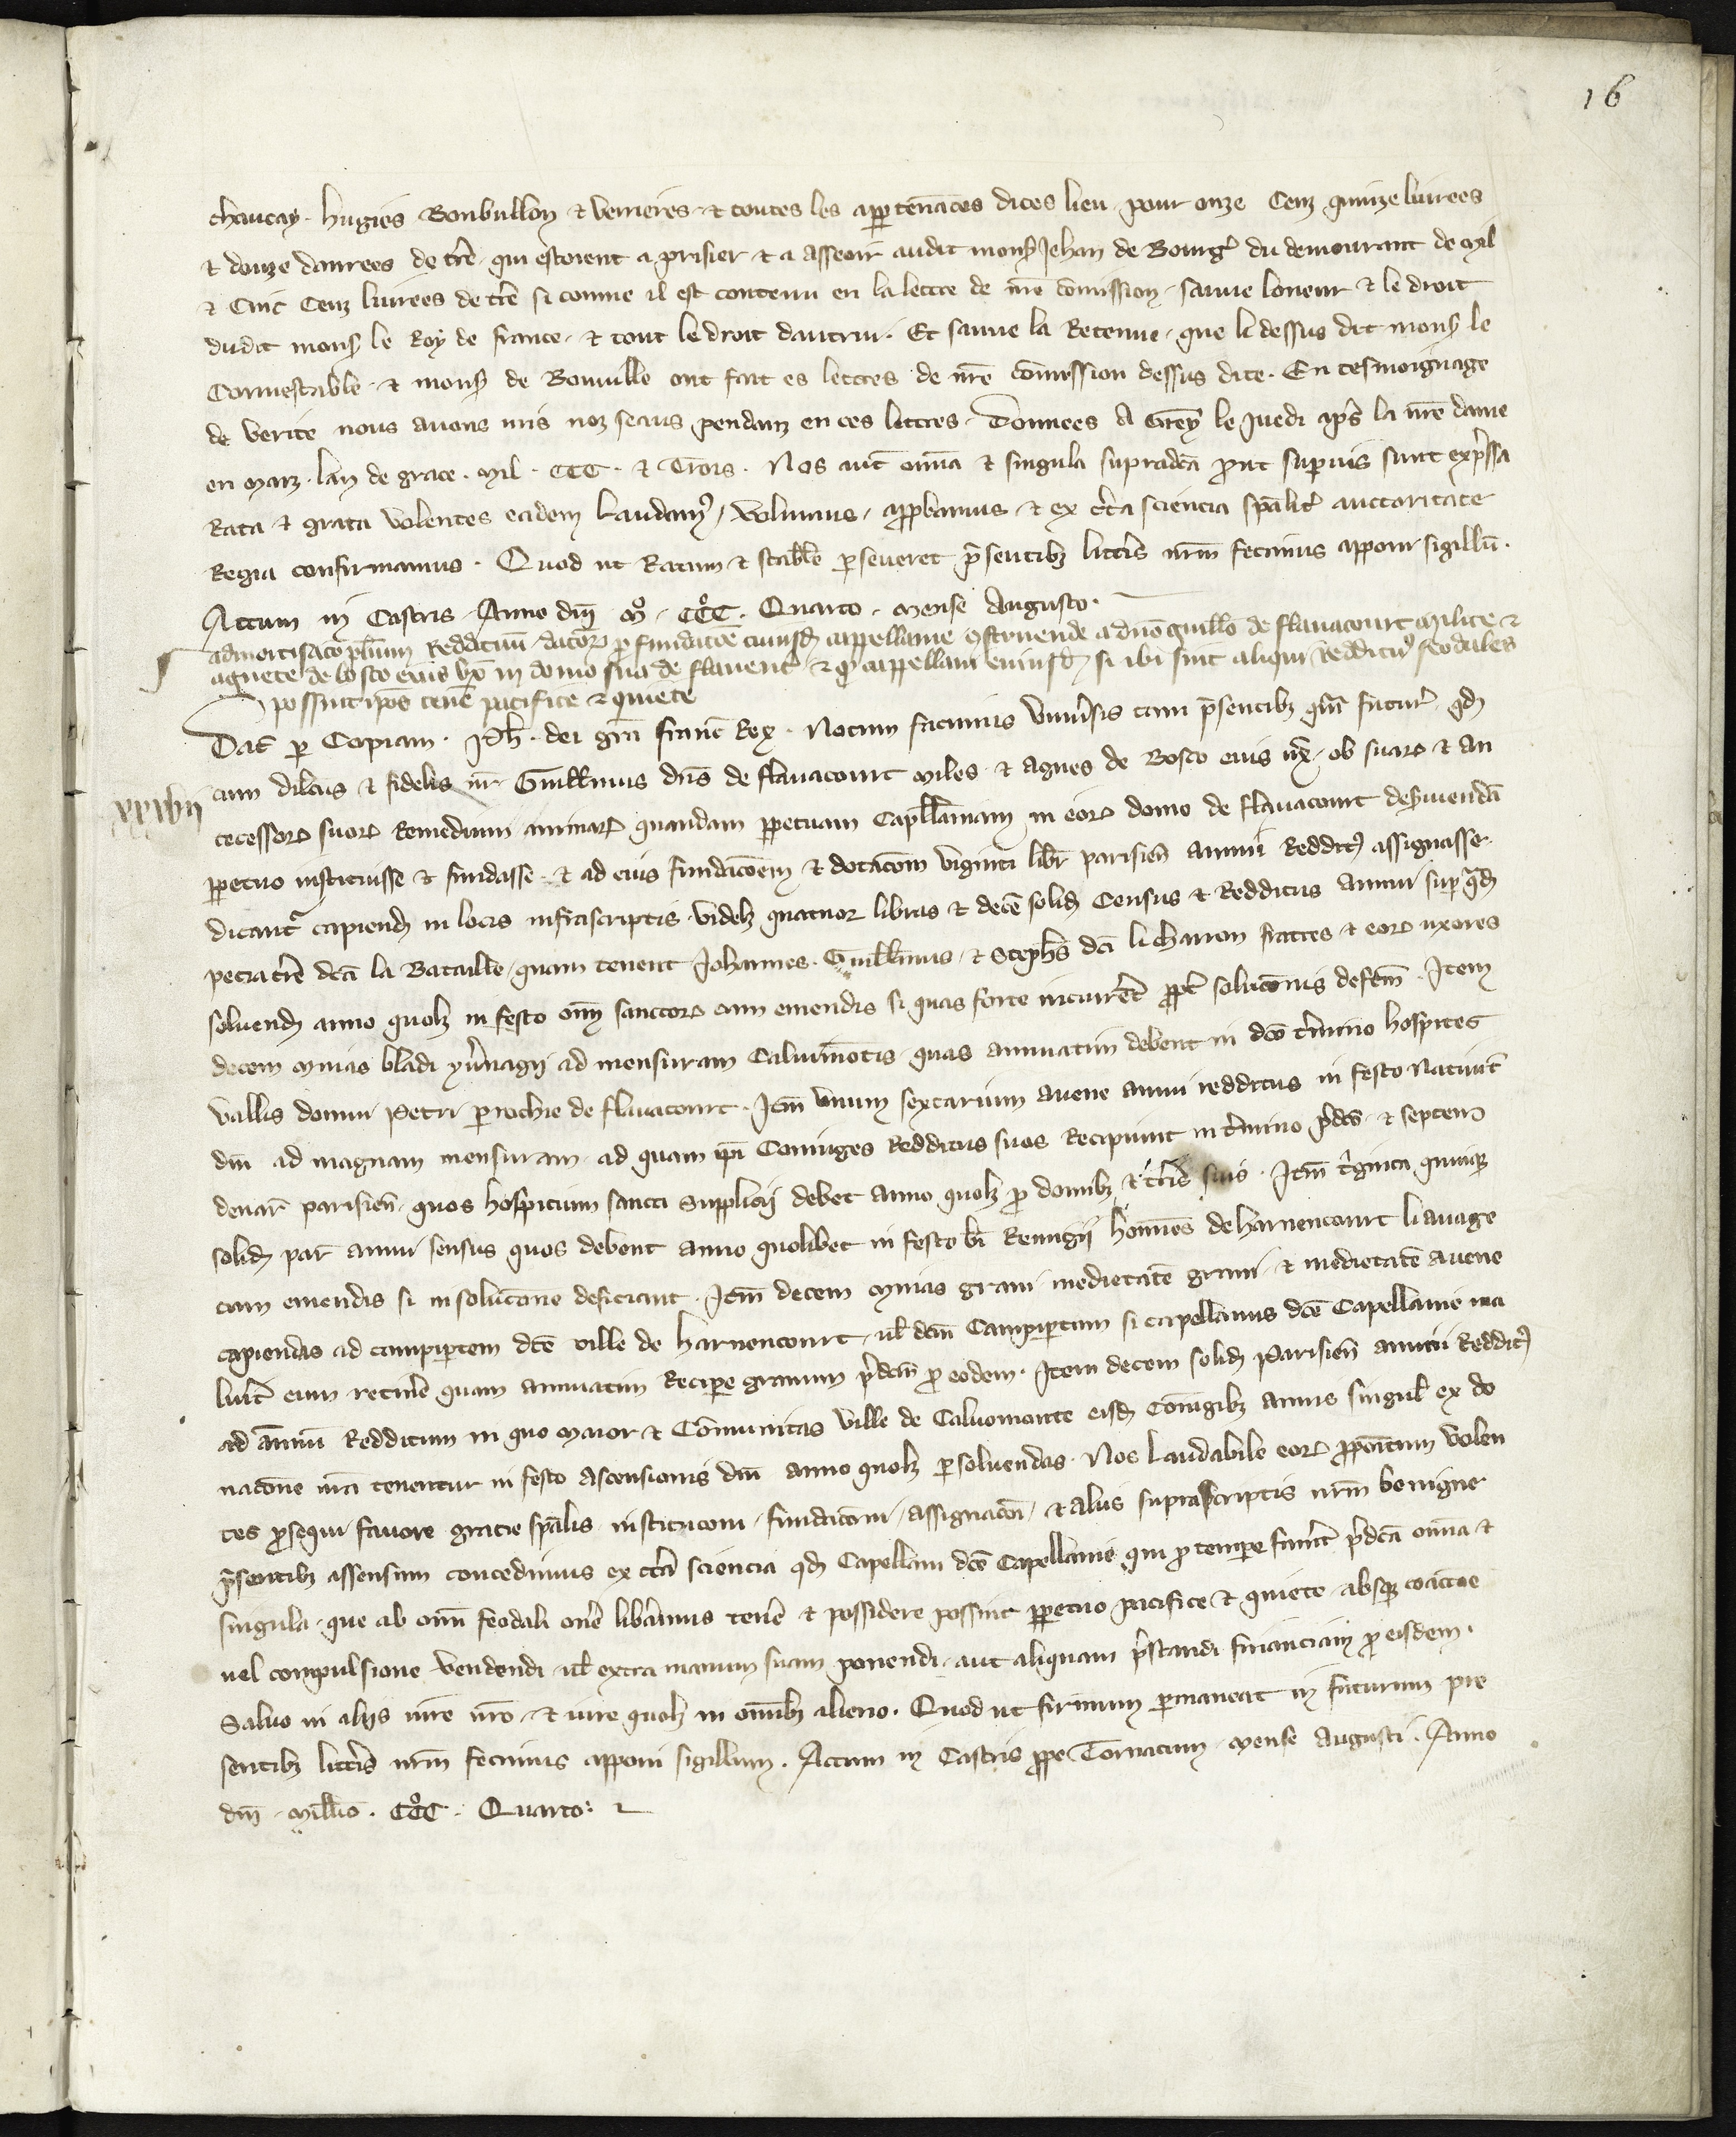 16
chaucay. hugies Bonbullon & verrieres & toutes les appertenāces dices lieu. pour onze Cenz quinze livrees
& douze danrees de tr̄e qui estoient a prisier & a asseoir audit mons' Jehan de Bourg' du demourant de Mil
& Cinc Cenz livrees de tr̄e si comme il est contenu en la lettre de nr̄e com̄ission. sauve loneur & le droit
dudit mons' le Roy de france. & tout le droit dautrui. Et sauve la Retenue. que li dessus dit mons' le
Connestable. & mons' de Bonville ont fait es lettres de nr̄e com̄ission dessus dite. En tesmoignage
de verite nous avons mis noz seaus pendanz en ces lettres. Donnees A Grey le Juedi ap̄s la nr̄e dame
en Marz. lan de grace. Mil. CCC. & Trois. Nos aut̄ om̄ia & singula supradc̄a ꝓut superius sunt exp̄ssa
Rata & grata volentes eadem Laudam', volumus, apꝓbamus, & ex c̄ta sciencia sp̄alit̄ auctoritate
Regia confirmamus. Quod ut Ratum & stabile perseveret p̄sentibz litt̄is nr̄m fecimus apponi sigillū.
Actum in Castris. Anno dn̄i. Mº. CCCº. Quarto. mense Augusto.
admortisac̄o plurium Reddituū dator̄ ꝓ fundac̄oe cuiusd̄ cappellanie ꝯstruende a dn̄o guill̄o de flavacourt Milite &
agnete de bosco eius ux̄ in domo sua de flavenc̄. & ꝙ cappellani eiusd̄ si ibi sint aliqui Redditus feodales
possint ip̄os tenē pacifice & quiete
xxxvii
Dat̄ per Copiam. Ph̄. dei gr̄a franc̄ Rex. Notum facimus Univ̄sis tam p̄sentibz qm̄ futur̄. qd̄
cum dilc̄us & fidelis nr̄ Guillmus dn̄s de flavacourt Miles. & Agnes de Bosco eius ux̄. ob suar̄ & an
tecessor̄ suor̄ Remedium animar̄ quandam ꝑpetuam Capll̄aniam in eor̄ domo de flavacourt des̄viendā
ꝑpetuo instituisse & fundasse. & ad eius fundac̄oem & dotac̄om viginti libr̄ parisien̄ annui Reddit' assignasse.
dicant̄ capiend̄ in locis infrascriptis. videlz quatuor libras & decē solid̄ Census & Redditus annui suꝑ qd̄
petiatr̄e dc̄a la Bataille, quam tenent Johannes. Guillmus, & Steph̄s dc̄i li Charron fratres & eor̄ uxores
solvend̄ anno quolz in festo om̄ sanctor̄ cum emendis si quas forte incurrer̄t ꝓpt̄ soluc̄onis defc̄m. Item
decem Minas bladi yv̄nagii ad mensuram Calvimōtis. quas annuatim debent in dc̄o t̄mino hospites
vallis domini Petri parrochie de flavacourt. Itm̄ Unum sextarium avene annui redditus in festo Nativit̄
dn̄i ad magnam mensuram. ad quam ip̄i Coniuges Redditus suos Recipiunt in t̄mino p̄dc̄o. & septem
denar̄ parisien̄. quos hospitium sancti Supplicij debet anno quolz ꝓ domibz & tr̄is suis. Itm̄ t̄ginta quinqz
solid̄ par̄ annui sensus quos debent anno quolibet in festo bī Remigij hoīnes de harnencourt li avage
cum emendis si in soluc̄one deficiant. Itm̄ decem Minas grani medietatē grani, & medietatē avene
capiendas ad campiꝑtem dc̄e ville de harnencourt, ul̄ dc̄m Campiꝑtum si capellanus dc̄e Capellanie ma
luit̄ eum retinēe quam annuatim Recipere granum p̄dc̄m ꝓ eodem. Item decem solid̄ Parisien̄ annui Reddit'
ad annuū Redditum in quo Maior & Co͞munitas ville de Calvomonte eisd̄ Coniugibz annis singul̄ ex do
nac̄one nr̄a tenentur in festo ascensionis dn̄i anno quolz persolvendos. Nos laudabile eor̄ ꝓpoitum volen
tes ꝓsequi favore gracie sp̄alis. instituc̄oni, fundac̄oni, assignac̄oi, & aliis suprascriptis nr̄m benigne
p̄sentibz assensum concedimus ex c̄ta sciencia qd̄ Capellani dc̄e Capellanie qui ꝓ tempore fuer̄t p̄dc̄a om̄ia &
singula. que ab om̄i feodali on̄e lib̄amus tenē & possidere possint ꝑpetuo pacifice & quiete. absqz coacc̄oe
vel compulsione vendendi. ul̄ extra manum suam ponendi. aut aliquam p̄standi financiam ꝓ eisdem.
Salvo in aliis iure nr̄o, & iure quolz in om̄ibz alieno. Quod ut firmum permaneat in futurum pre
sentibz litt̄is nr̄m fecimus apponi sigillum. Actum in Castris ꝓpe Tornacum. Mense Augusti. Anno
dn̄i. Mill̄io. CCCº. Quarto.